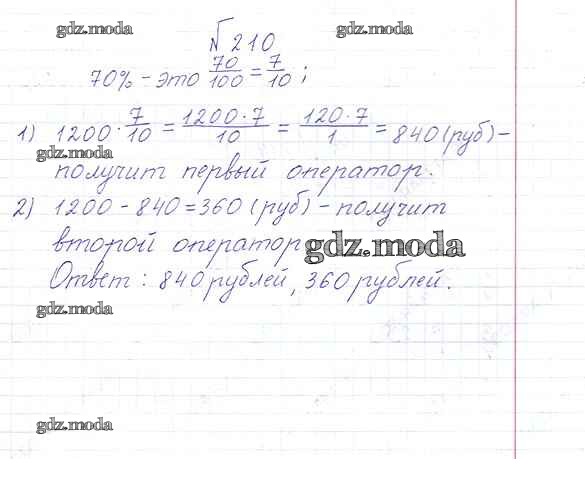 gdz.moda gdz.moda
№ 210
70% - это 70/100 = 7/10 ;
1) 1200 · 7/10 = 1200 · 7/10 = 120 · 7/1 = 840 (руб) -
gdz.moda
получит первый оператор.
2) 1200 - 840 = 360 (руб) - получит
второй оператор
gdz.moda
Ответ : 840 рублей, 360 рублей.
gdz.moda
gdz.moda